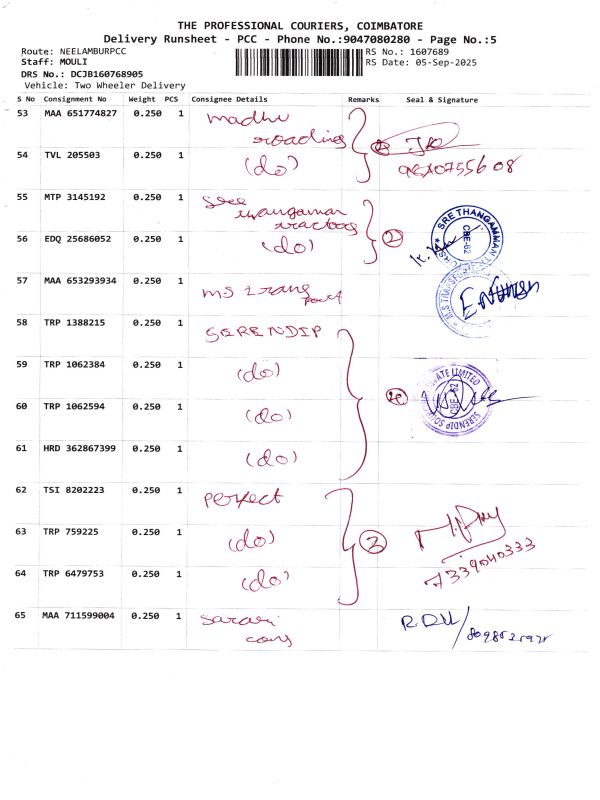 THE PROFESSIONAL COURIERS, COIMBATORE
Delivery Runsheet - PCC - Phone No.:9047080280 - Page No.:5
Route: NEELAMBURPCC
RS No.: 1607689
Staff: MOULI
RS Date: 05-Sep-2025
DRS No.: DCJB160768905
Vehicle: Two Wheeler Delivery
S No Consignment No Weight PCS Consignee Details Remarks Seal & Signature
53 MAA 651774827 0.250 1 madhu
roading
54 TVL 205503 0.250 1 (do)
55 MTP 3145192 0.250 1 sree
tractors
56 EDQ 25686052 0.250 1 (do) 2
SRE THANGAMMAN
CBE-62
57 MAA 653293934 0.250 1 ms trans
port
58 TRP 1388215 0.250 1 SERENDIP
59 TRP 1062384 0.250 1 (do)
60 TRP 1062594 0.250 1 (do)
SERENDIP
PRIVATE LIMITED
CBE-62
61 HRD 362867399 0.250 1 (do)
62 TSI 8202223 0.250 1 perfect
63 TRP 759225 0.250 1 (do) 3
7339040333
64 TRP 6479753 0.250 1 (do)
65 MAA 711599004 0.250 1